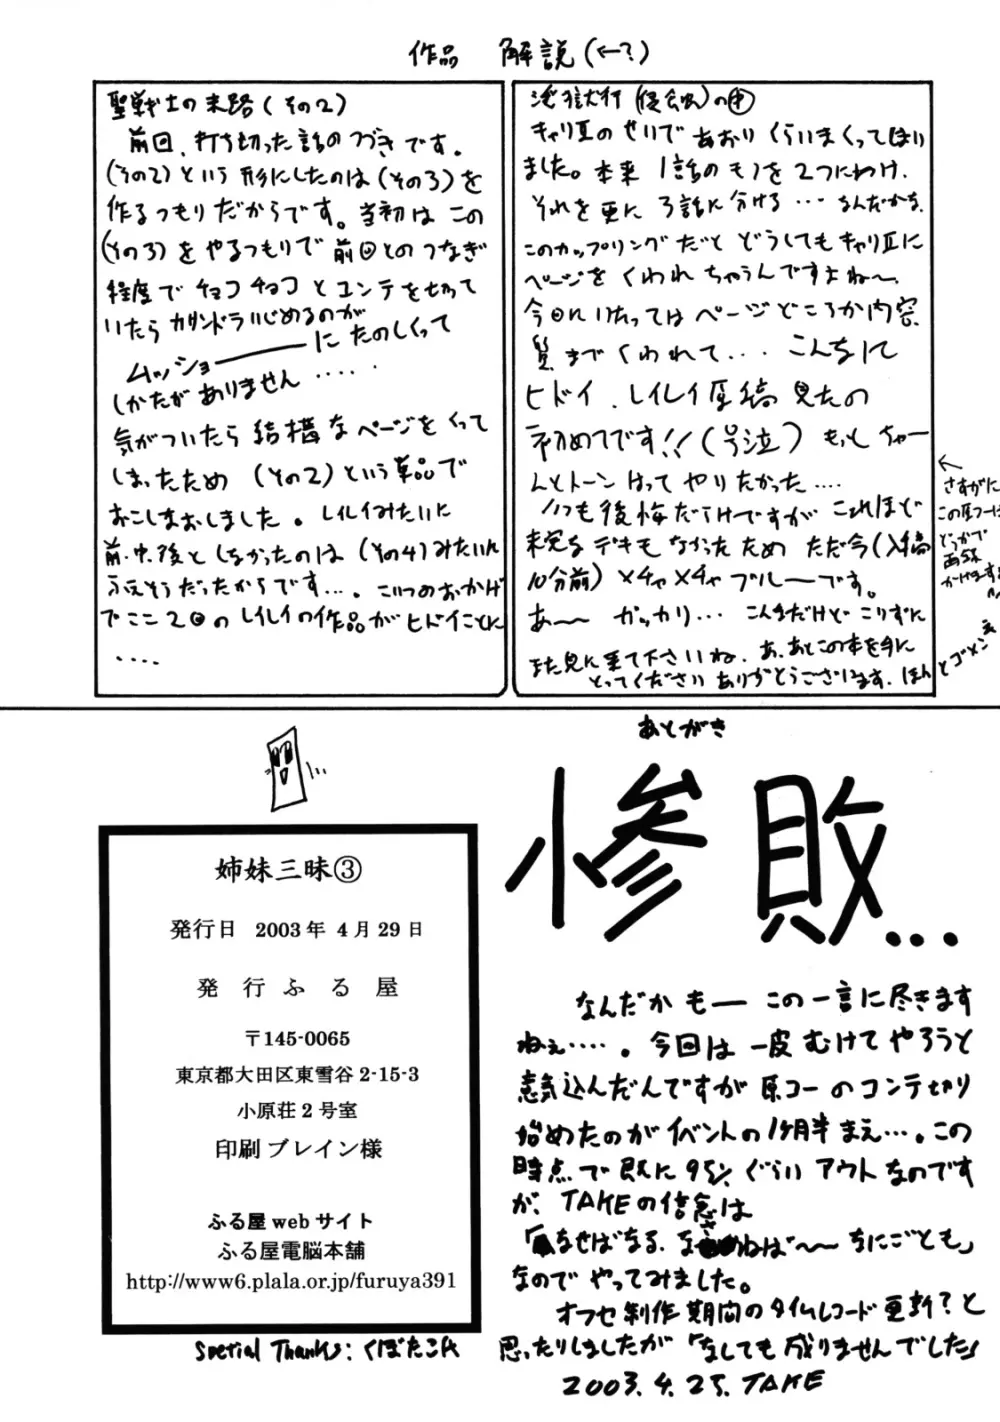 作品 解説(←?)
聖戦士の末路(その2)
前回、打ち切った話のつづきです。
(その2)という形にしたのは(その3)を
作るつもりだからです。当初はこの
(その3)をやるつもりで前回とのつなぎ
程度でチョコチョコとコンテを切って
いたらカサンドラいじめるのが
ムッショーーーーにたのしくって
しかたがありません・・・・・
気がついたら結構なページをくって
しまったため(その2)という単品で
おこしなおしました。レイレイみたいに
前・中・後としなかったのは(その4)みたいに
ふえそうだったからです・・・。こいつのおかげ
でここ2回のレイレイの作品がヒドイことに
・・・・
キャリ豆のせいであおりくらいまくってはいり
ました。本来1話のモノを2つにわけ、
それを更に3話に分ける・・・なんだかな、
このカップリングだとどうしてもキャリ豆に
ページをくわれちゃうんですよね〜
今回にいたってはページどころか内容
質までくわれて・・・こんなに
ヒドイ、レイレイ原稿見たの
初めてです!!(号泣)もっとちゃー
んとトーンはってやりたかった・・・・
いつも後悔だらけですがこれほど
未完なデキもなかったためただ今(入稿
10分前)メチャメチャブルーです。
あ〜〜ガッカリ・・・こんなだけどこりずに
また見に来て下さいね、あ、あとこの本を手に
とってくださいありがとうございます、ほんとゴメンネ
←
さすがに
この原コーは
どっかで
画張
かけます
あとがき
惨敗...
なんだかもーーこの一言に尽きます
ねぇ・・・・・。今回は一皮むけてやろうと
意気込んだんですが原コーのコンテ切り
始めたのがイベントの1ヶ月半まえ・・・。この
時点で既に95%ぐらいアウトなのです
が、TAKEの信念は
「なせばなる、なさねば〜〜なにごとも」
なのでやってみました。
オフセ制作期間のタイムレコード更新?と
思ったりしましたが「なしても成りませんでした」
2003.4.25.TAKE
姉妹三昧③
発行日 2003年4月29日
発行ふる屋
〒145-0065
東京都大田区東雪谷2-15-3
小原荘2号室
印刷ブレイン様
ふる屋webサイト
ふる屋電脳本舗
http://www6.plala.or.jp/furuya391
Special Thanks:くぼたこん